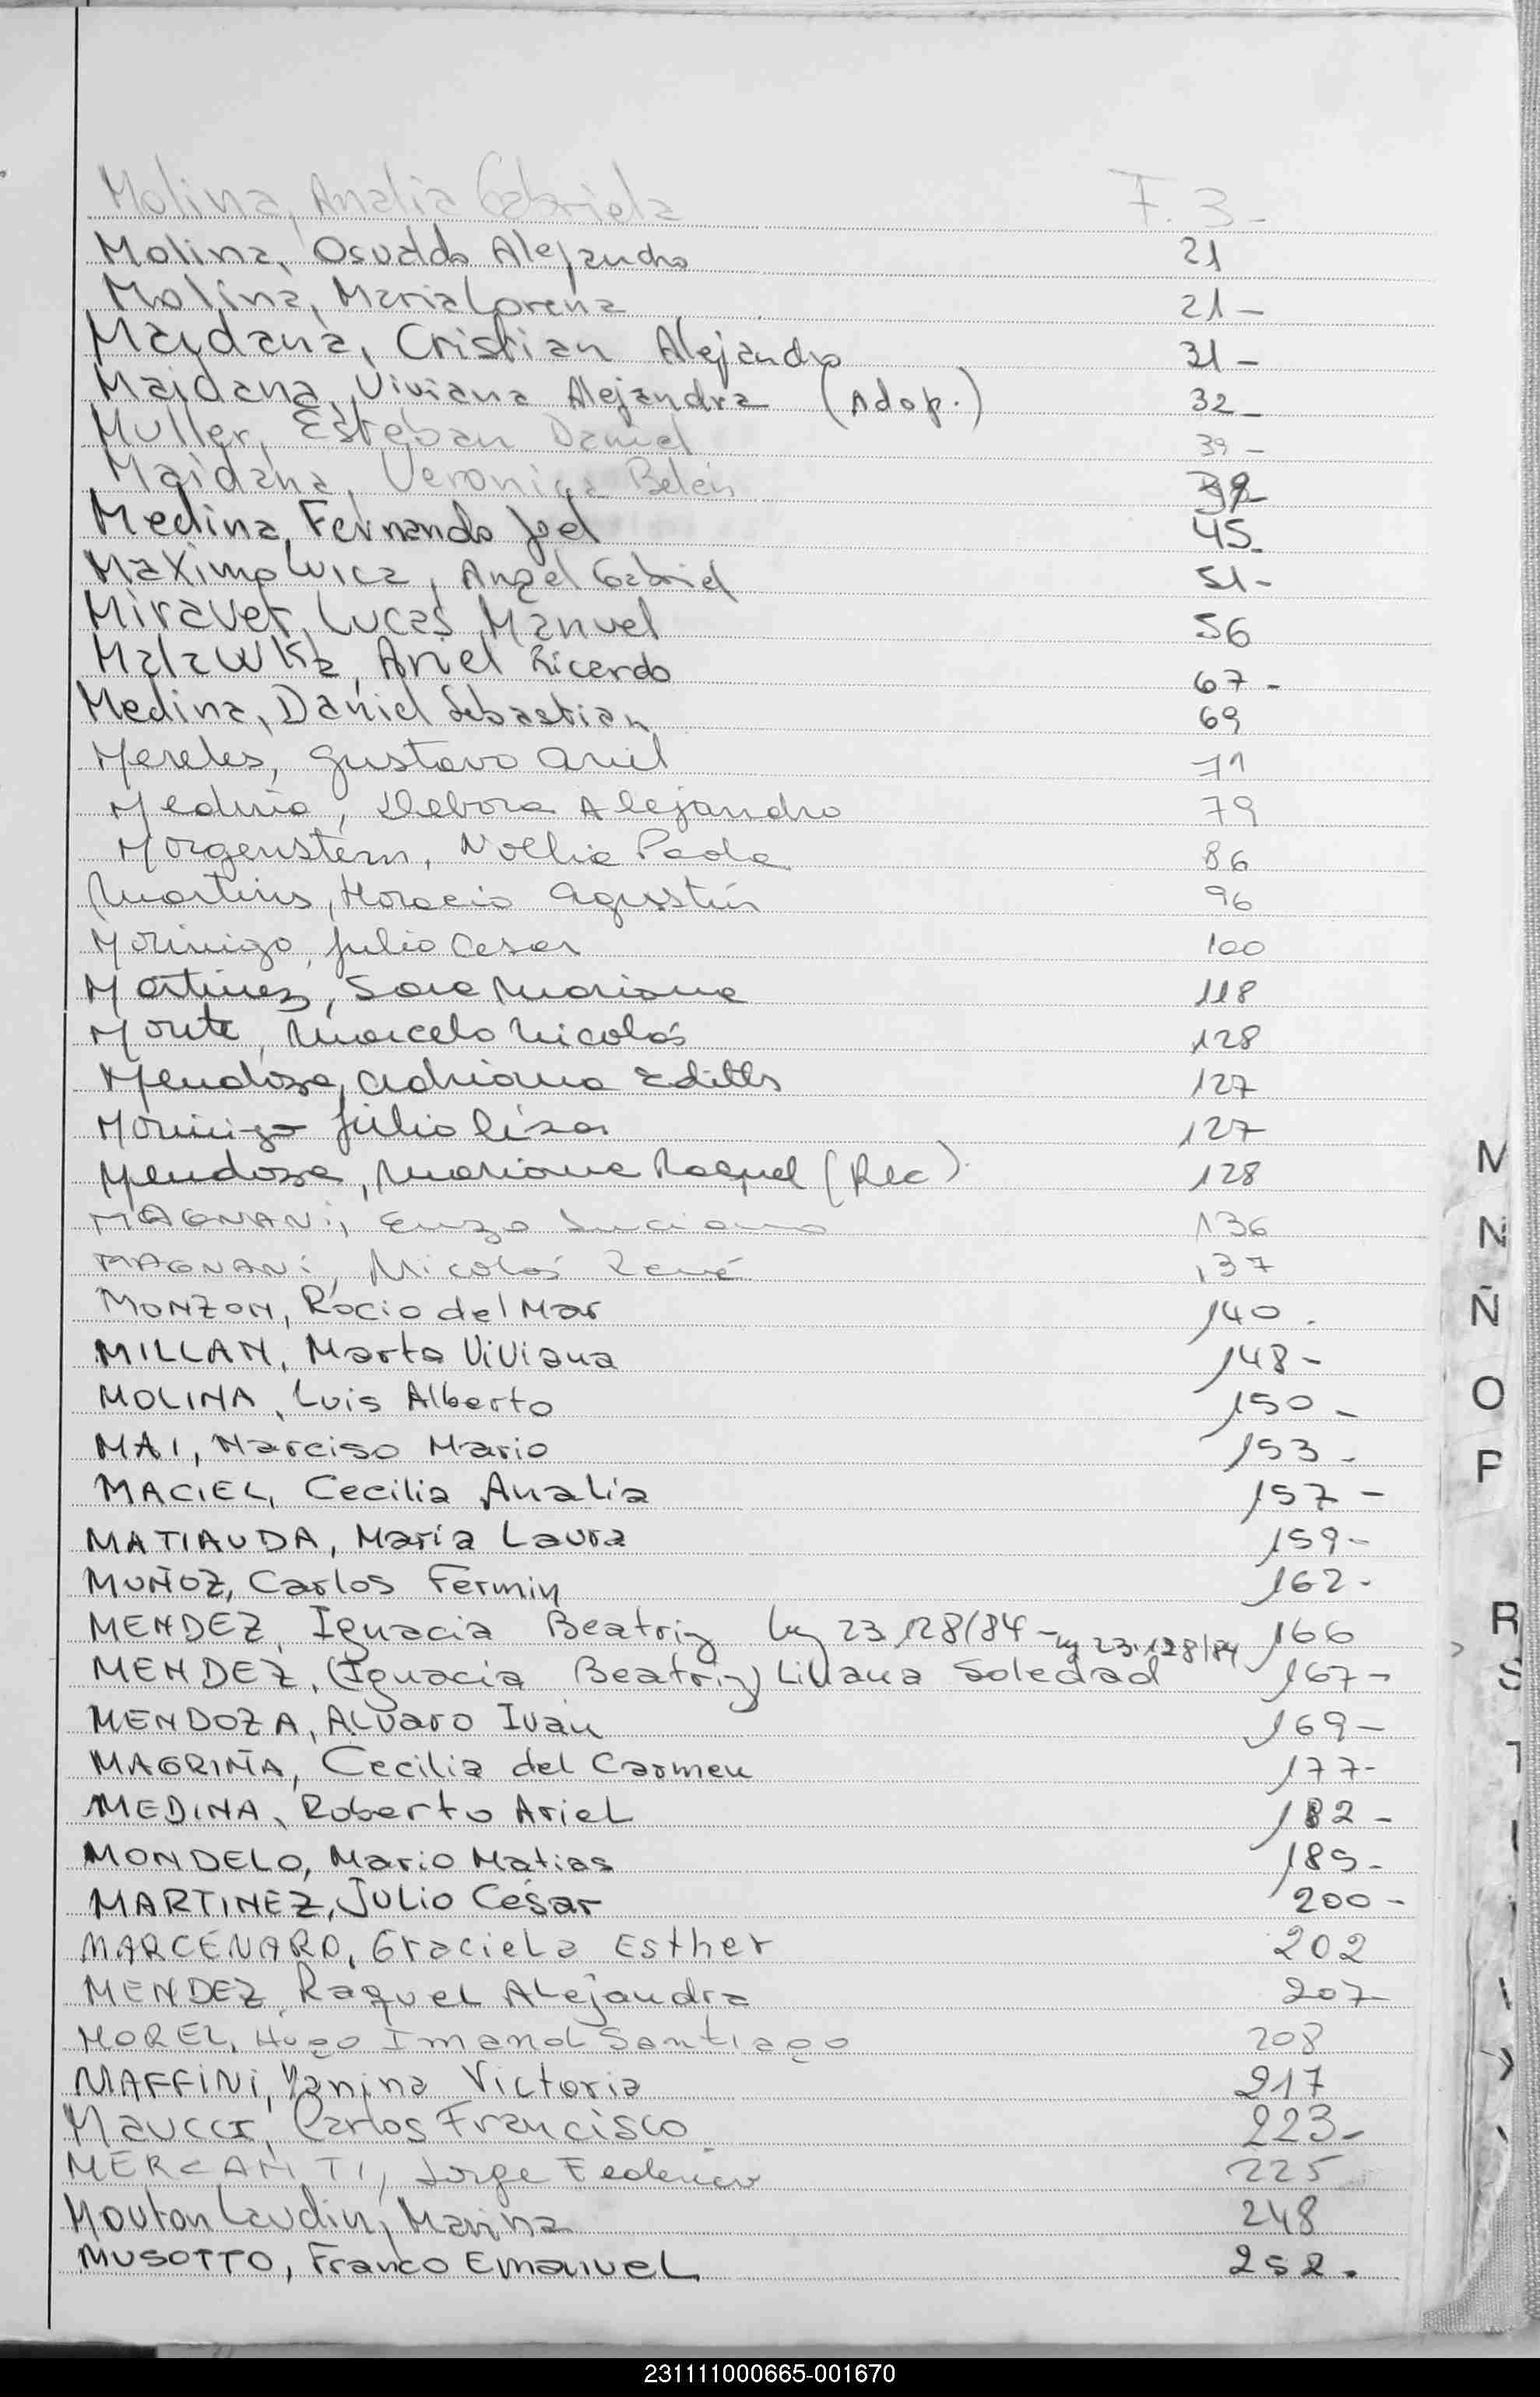 Molina, Analia Gabriela F. 3-
Molina, Osvaldo Alejandro 21
Molina, Maria Lorena 21-
Maidana, Cristian Alejandro 31-
Maidana, Viviana Alejandra (Adop.) 32-
Muller, Esteban Daniel 39-
Maidana, Veronica Belén
Medina, Fernando Joel 45-
Maximowicz, Angel Gabriel 51-
Miravet, Lucas Manuel 56
Ariel Ricardo 67-
Medina, Daniel Sebastian 69
Mereles, Gustavo Ariel 71
Medina, Debora Alejandra 79
Morgenstern, Noelia Paola 86
Martins, Horacio Agustín 96
Morinigo, Julio Cesar 100
Martinez, Sara Mariana 118
Monte, Marcelo Nicolás 128
Mendoza, Adriana Edith 127
Morinigo Julio César 127
Mendoza, Mariana Raquel (Rec) 128
MAGNANi, Enzo Luciano 136
MAGNANi, Nicolás René 137
MONZON, Rocio del Mar 140.
MILLAN, Marta Viviana 148-
MOLINA, Luis Alberto 150-
MAI, Narciso Mario 153-
MACIEL, Cecilia Analia 157-
MATIAUDA, Maria Laura 159-
MUÑOZ, Carlos Fermin 162-
MENDEZ, Ignacia Beatriz Ley 23.128/84 - Ley 23.128/84 166
MENDEZ, (Ignacia Beatriz) Liliana Soledad 167-
MENDOZA, Alvaro Ivan 169-
MAGRIÑA, Cecilia del Carmen 177-
MEDINA, Roberto Ariel 182-
MONDELO, Mario Matias 189-
MARTINEZ, Julio César 200-
MARCENARO, Graciela Esther 202
MENDEZ, Raquel Alejandra 207-
MOREL, Hugo Imanol Santiago 208
MAFFINi, Yanina Victoria 217
Carlos Francisco 223-
MERCANTI, Jorge Federico 225
Mouton Laudin, Marina 248
MUSOTTO, Franco Emanuel 252.
M
N
Ñ
O
P
R
S
T
231111000665-001670